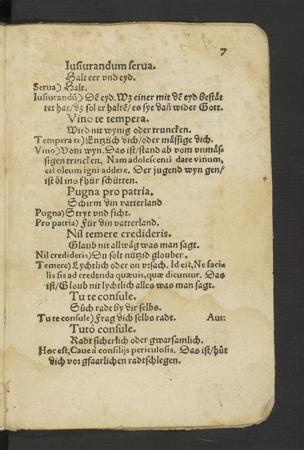 7
Iusiurandum serua.
Halt eer vnd eyd.
Serua) Halt.
Iusiurandū) Dē eyd. Wz einer mit dē eyd bestät
tet hat/ dz sol er haltē/ es sye dañ wider Gott.
Vino te tempera.
Wird nit wynig oder truncken.
Tempera te) Enzüch dich/ oder mässige dich.
Vino) Vom wyn. Das ist/ stand ab vom vnmäs-
sigen trincken. Nam adolescenti dare vinum,
est oleum igni addere. Der jugend wyn gen/
ist öl ins fhür schütten.
Pugna pro patria.
Schirm din vatterland
Pugna) Stryt vnd ficht.
Pro patria) Für din vatterland.
Nil temere credideris.
Glaub nit allwäg was man sagt.
Nil credideris) Du solt nützid glouben.
Temere) Lychtlich oder on vrsach. Id est, Ne facia
lis sis ad credenda quæuis, quæ dicuntur. Das
ist/ Gloub nit lychtlich alles was man sagt.
Tu te consule.
Süch radt by dir selbs.
Tu te consule) Frag dich selbs radt. Aut:
Tutò consule.
Radt sicherlich oder gwarsamlich.
Hoc est, Caue à consilijs periculosis. Das ist/ hüt
dich vor gfaarlichen radtschlegen.